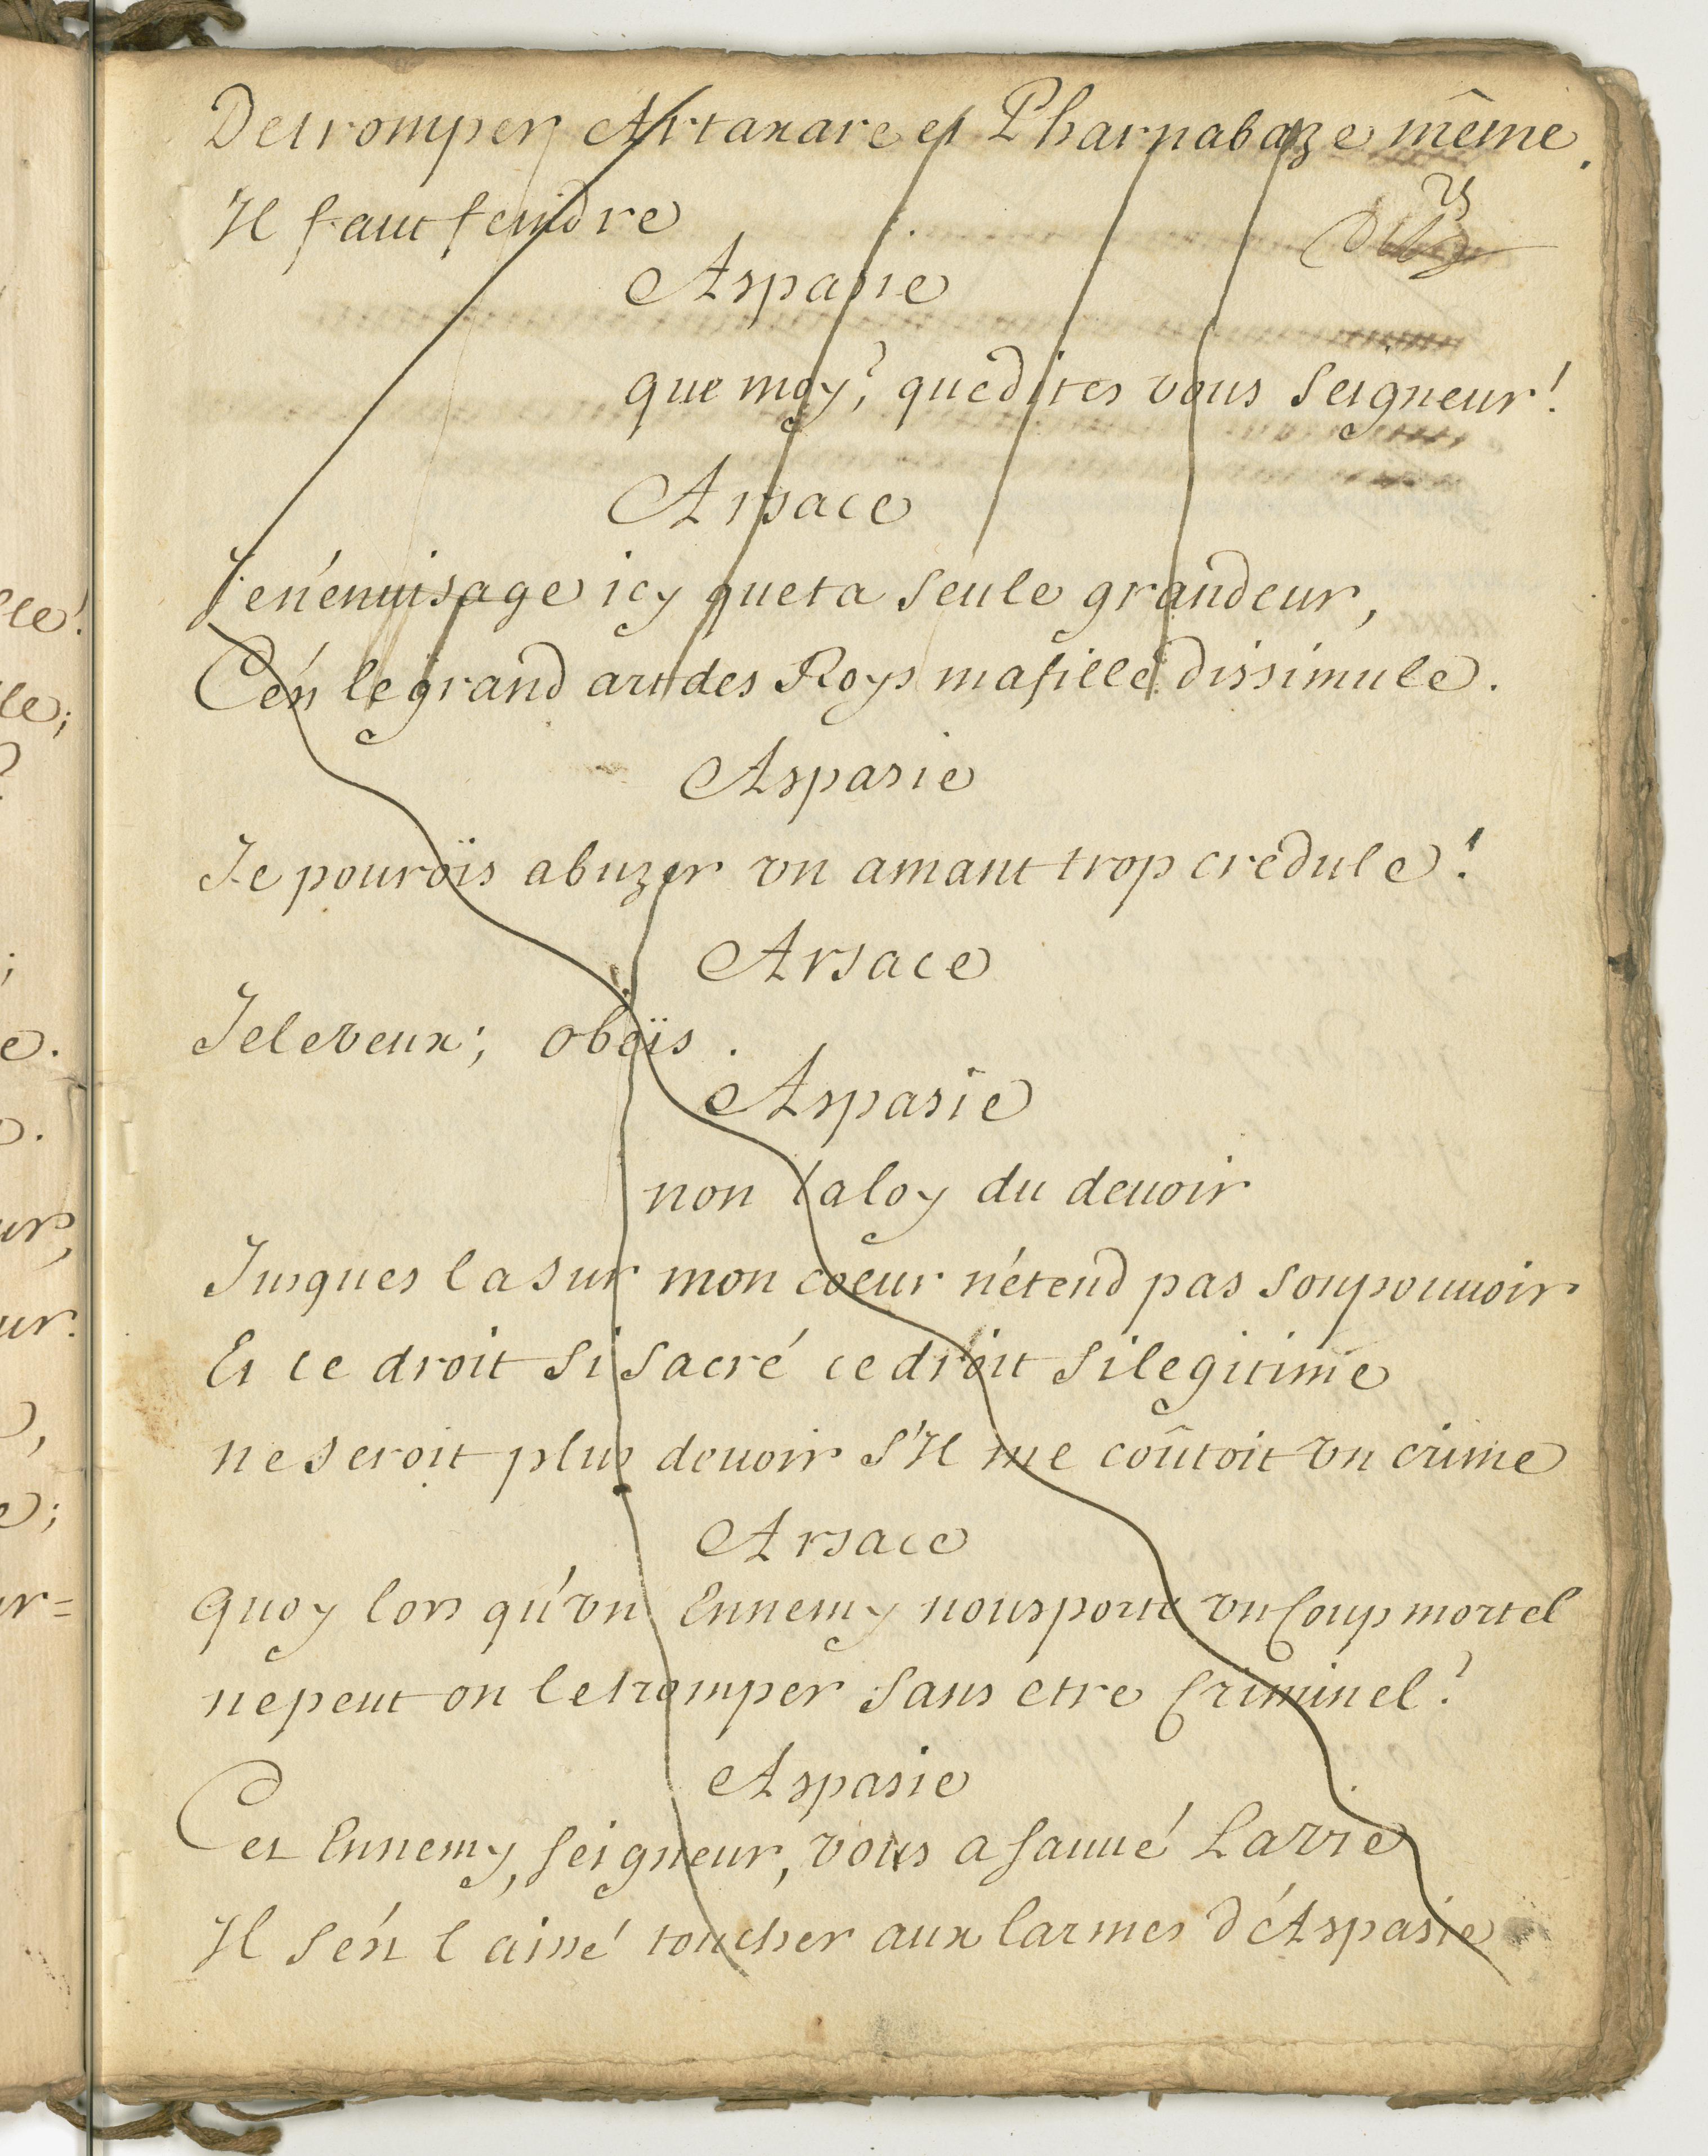 Detromper Artaxare et Pharnabaze même.
Il faut feindre
Aspasie
que moy? que dites vous Seigneur!
Arsace
Je n'enuisage icy que ta Seule grandeur,
C'en le grand art des Roys ma fille dissimule.
Aspasie
Je pouroïs abuzer vn amant trop credule!
Arsace
Je le veux; obeïs.
Aspasie
non la loy du deuoir
Jusques la sur mon coeur n'étend pas son pouuoir
Et ce droit si sacré ce droit si legitime
ne seroit plus deuoir s'Il me coûtoit vn crime
Arsace
quoy lors qu'vn Ennemy nous porte vn Coup mortel
ne peut on le tromper sans etre Criminel?
Aspasie
Cet Ennemy, seigneur, vous a sauué La vie
Il s'est laissé toucher aux larmes d'Aspasie